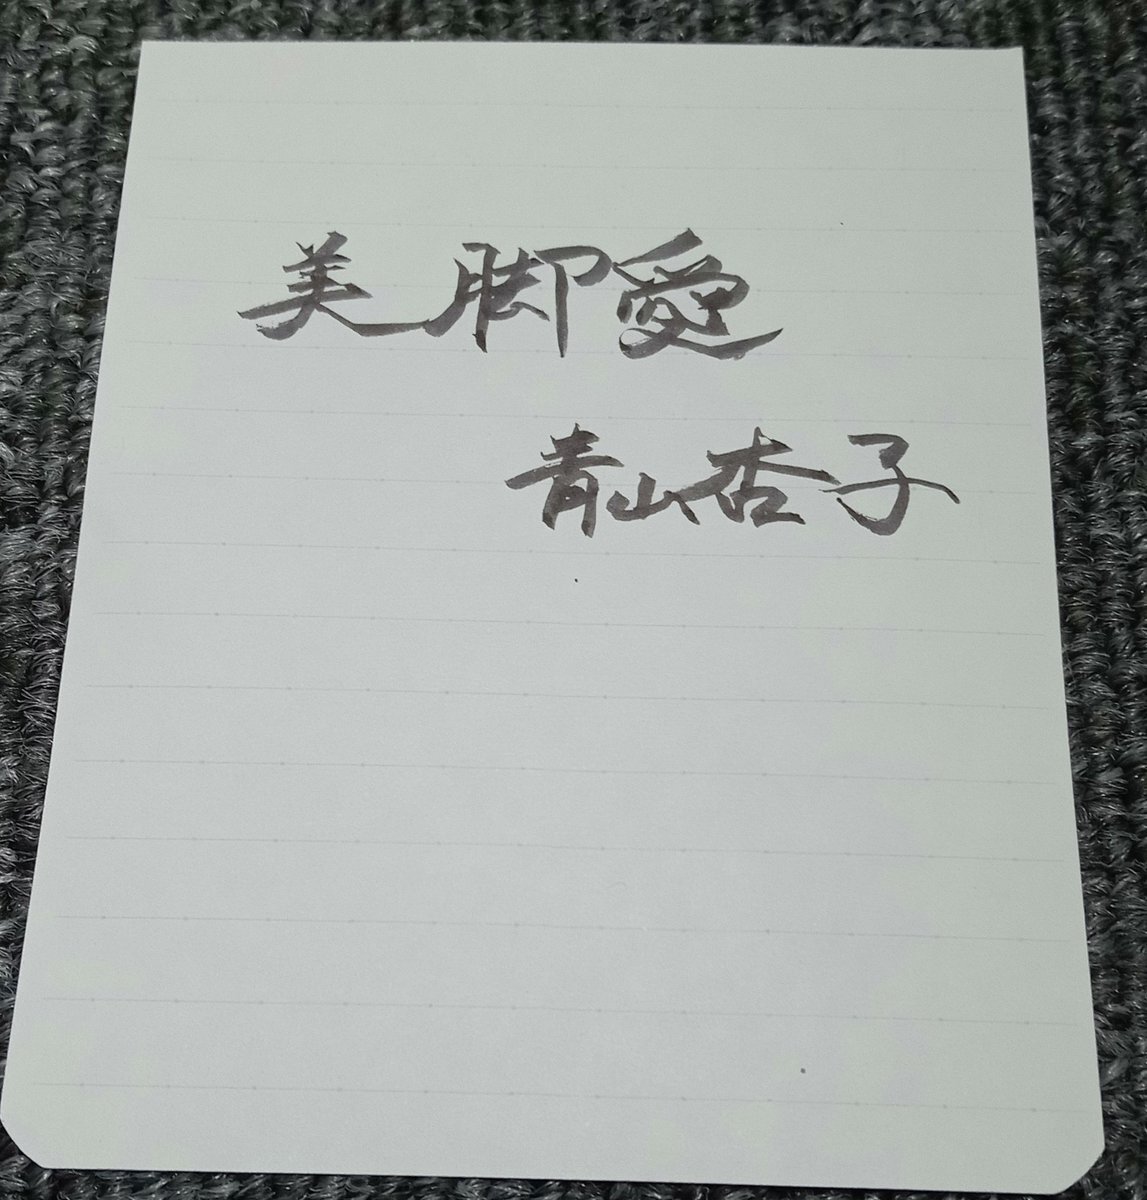 美脚愛
青山杏子